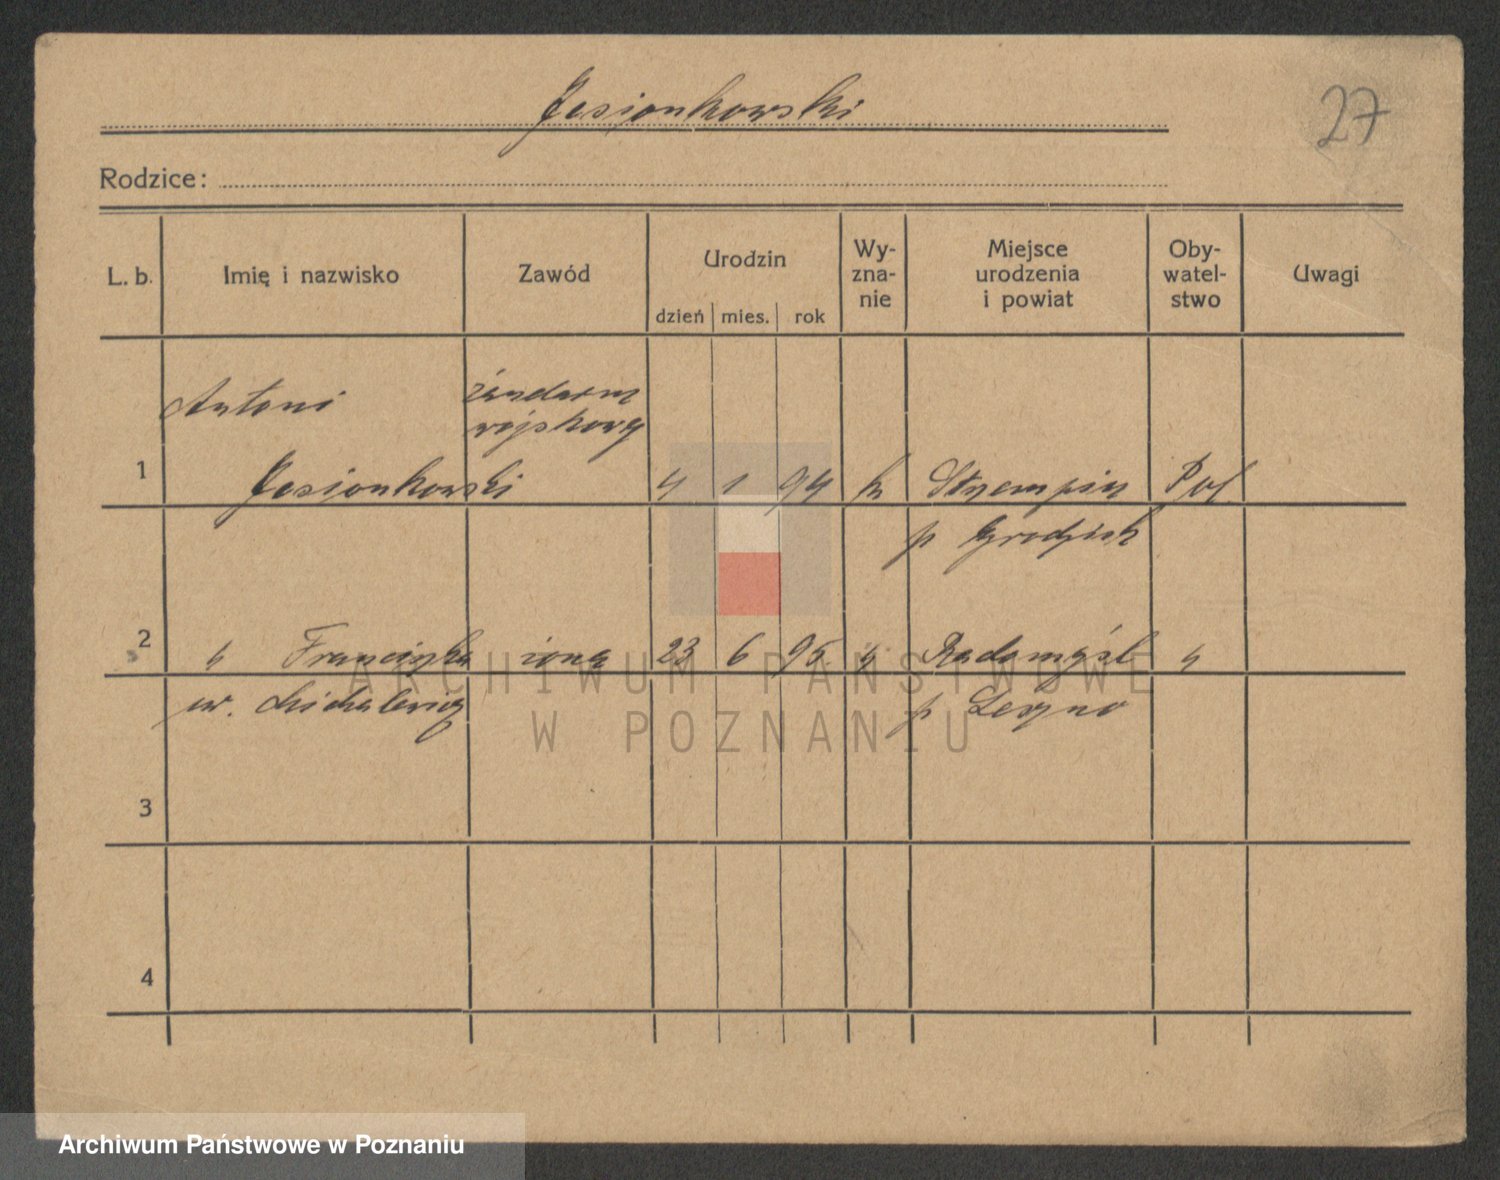 Jesionkowski
27
Rodzice:
L. b. Imię i nazwisko Zawód Urodzin dzień mies. rok Wy-zna-nie Miejsce urodzenia i powiat Oby-watel-stwo Uwagi
Antoni żandarm
wojskowy
1 Jesionkowski 4 1 94 k Strzempin Pol
p Grodzisk
2 " Franciszka żona 23 6 95 " Radomyśl "
ur. Michalewicz p Leszno
3
4
ARCHIWUM PAŃSTWOWE
W POZNANIU
Archiwum Państwowe w Poznaniu